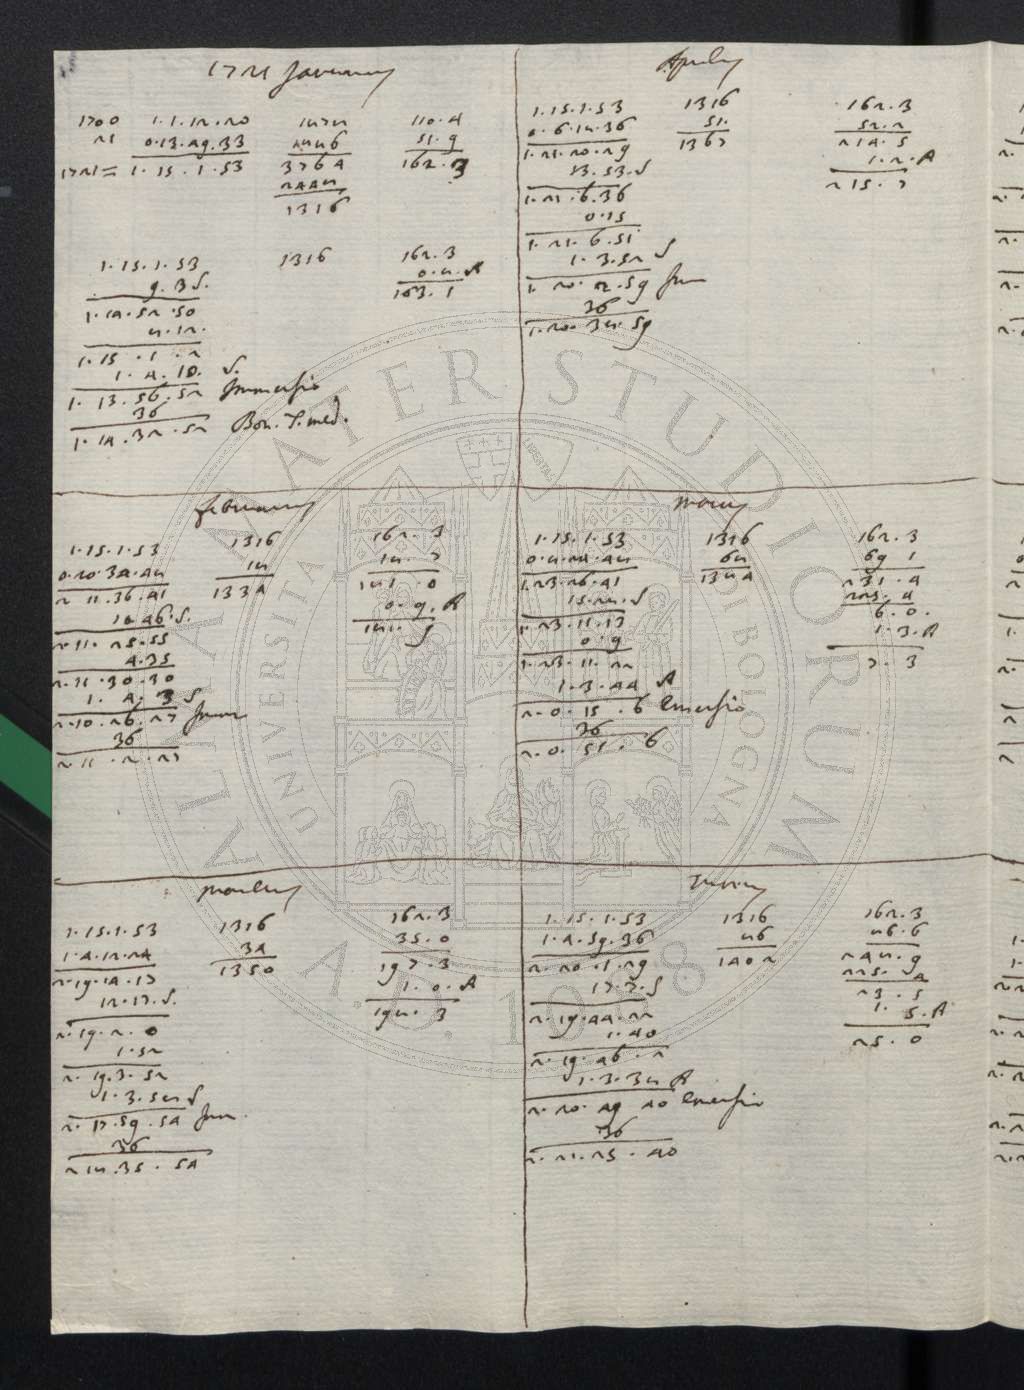 1721 January
1700 1.1.12.20 1878 110.4
21 0.13.49.33 1886 51.9
1721= 1.15.1.53 3764 162.3
2448
1316
1.15.1.53 1316 162.3
9.3 S. 0.8.A
1.14.52.50 163.1
8.12.
1.15.1.2
1.4.10. S.
1.13.56.52 Immersio
36
1.14.32.52 Bon. T. med.
February
1.15.1.53 1316 162.3
0.20.34.48 18 18.7
2 11.36.41 1334 181.0
10.46.S. 0.9.A
2.11.25.55 181.9
4.35
2.11.30.30
1.4.3 S
2.10.26.27 Imm
36
2 11.2.27
Martij
1.15.1.53 1316 162.3
1.4.12.24 34 35.0
2.19.14.17 1350 197.3
12.17.S. 1.0.A
2.19.2.0 198.3
1.52
2.19.3.52
1.3.58 S
2.17.59.54 Imm.
36
2 18.35.54
Aprilis
1.15.1.53 1316 162.3
0.6.18.36 51. 52.2
1.21.20.29 1367 214.5
13.53.S 1.2.A
1.21.6.36 215.7
0.15
1.21.6.51
1.3.52 S
1.20.2.59 Imm
36
1.20.38.59
Maij
1.15.1.53 1316 162.3
0.8.24.48 68 69 1
1.23.26.41 1384 231.4
15.28.S 225.4
1.23.11.13 6.0.
0.9 1.3.A
1.23.11.22 7.3
1.3.44 A
2.0.15.6 Emersio
36
2.0.51.6
Junij
1.15.1.53 1316 162.3
1.4.59.36 86 86.6
2.20.1.29 1402 248.9
17.7.S 225.4
2.19.44.22 23.5
1.40 1.5.A
2.19.46.2 25.0
1.3.38 A
2.20.49 40 Emersio
36
2.21.25.40
ALMA MATER STUDIORUM
UNIVERSITÀ DI BOLOGNA
A.D. 1088
LIBERTAS